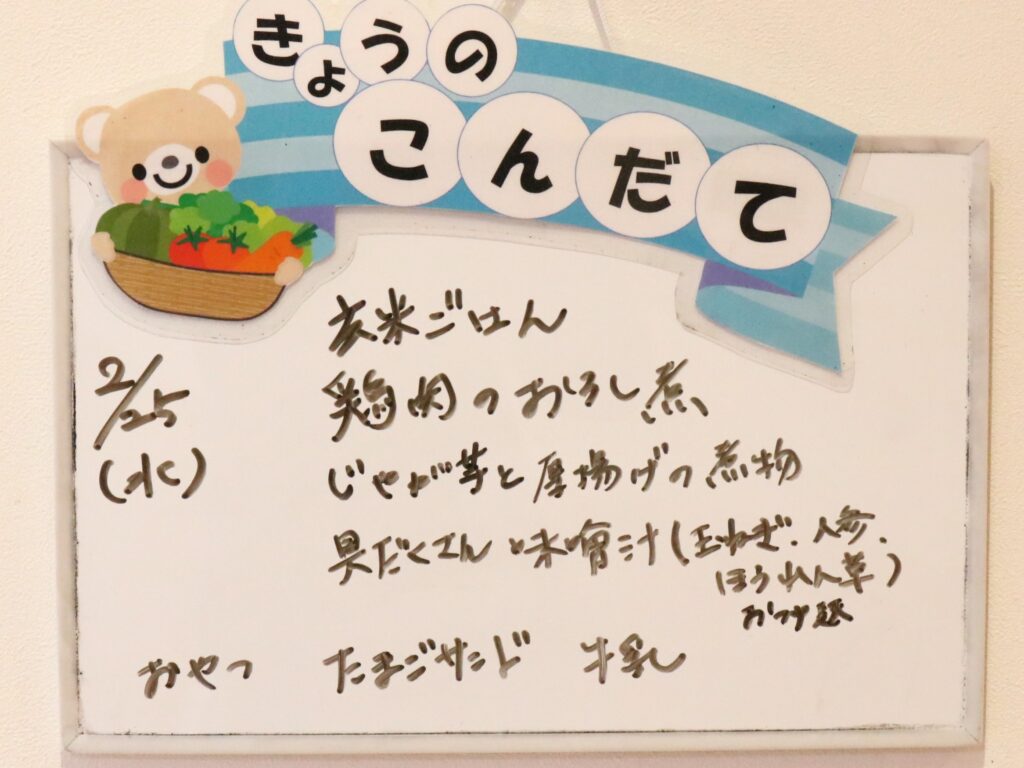 きょうの
こんだて
玄米ごはん
2/25
(水)
鶏肉のおろし煮
じゃが芋と厚揚げの煮物
具だくさん味噌汁(玉ねぎ、人参、
ほうれん草)
おやつ たまごサンド 牛乳